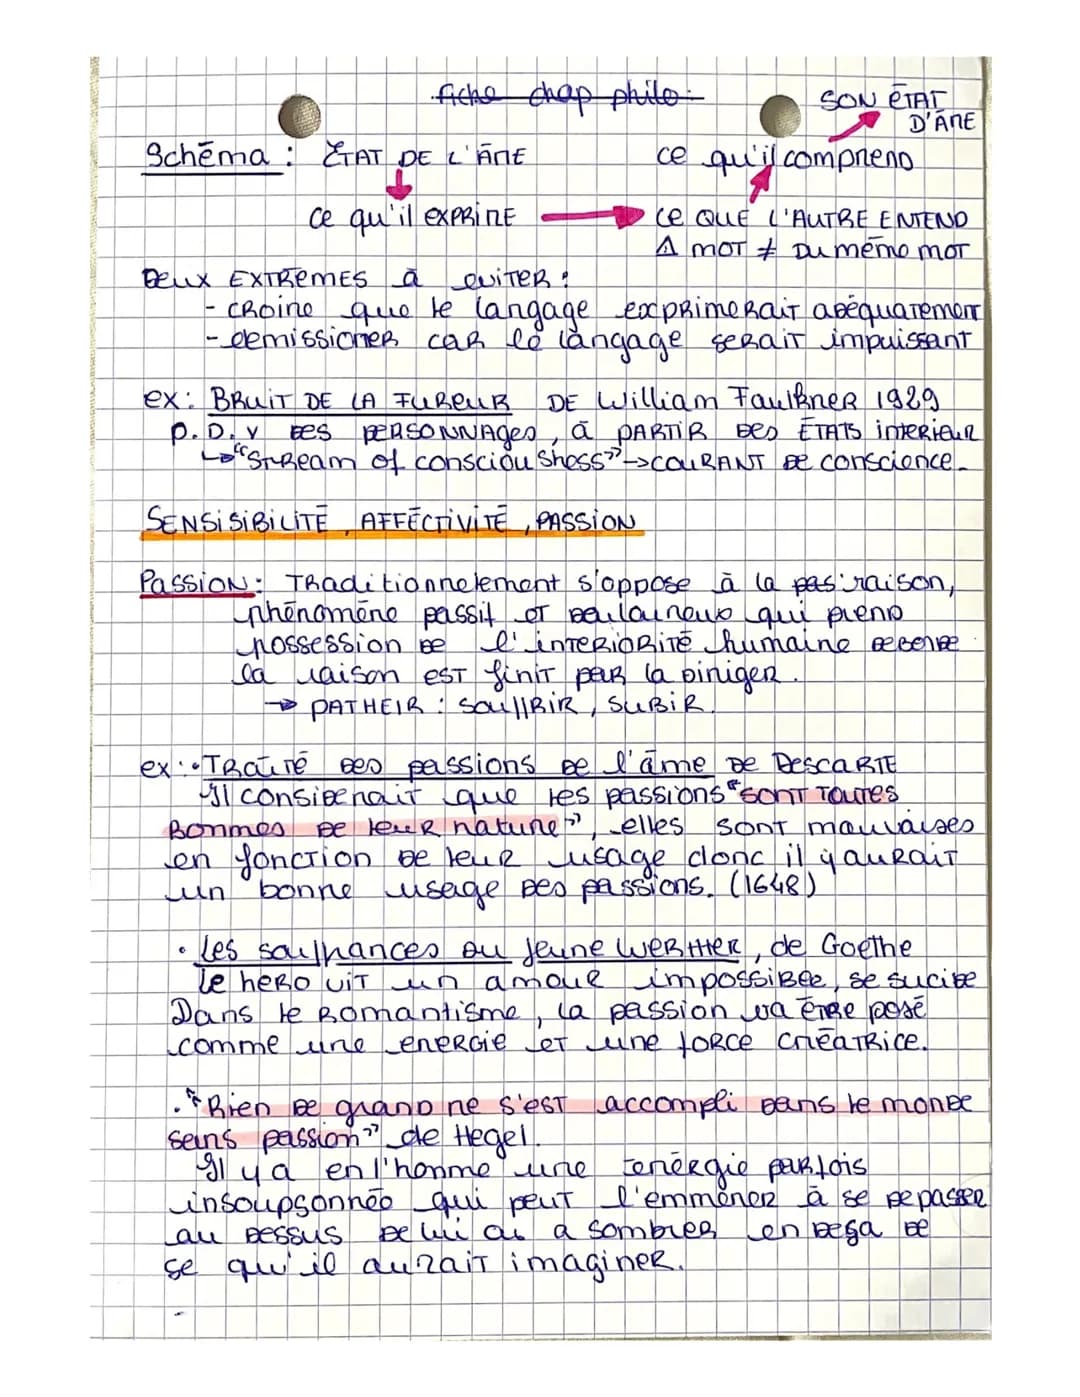 fiche chap philo :
SON ÉTAT
D'ÂME
Schéma : ÉTAT DE L'ÂME
ce qu'il comprend
ce qu'il EXPRIME
CE QUE L'AUTRE ENTEND
1 MOT ≠ DU même MOT
Deux EXTREMES à eviter :
- croire que le langage exprimerait adéquatement
- demissionner car le langage serait impuissant
ex : BRUIT DE LA FUREUR DE William Faulkner 1929
P.D.V des PERSONNAGES, à PARTIR DES ÉTATS intérieur
→ "Stream of consciousness" → COURANT DE conscience.
SENSISIBILITÉ, AFFÉCTIVITÉ, PASSION
Passion : Traditionnelement s'oppose à la pas raison,
phénomène passif et qui prend
possession de l'intériorité humaine
la raison EST finit par la
→ PATHEIR : souffrir, SUBIR.
ex : • Traité des passions de l'âme de Descarte
Il considérait que les passions "sont toutes
Bonnes de leur nature", elles sont mauvaises
en fonction de leur usage donc il y aurait
un bonne usage des passions. (1648)
• Les souffrances du jeune Werther, de Goethe
le hero vit un amour impossible, se sucide
Dans le romantisme, la passion va être posé
comme une energie et une force créatrice.
• "Rien de grand ne s'est accompli dans le monde
sans passion" de Hegel.
Il y a en l'homme une énérgie parfois
insoupsonnée qui peut l'emmener à se depasser
au dessus de lui ou a sombrer en deça de
se qu'il aurait imaginer.
-